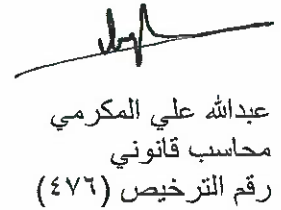 عبدالله علي المكرمي
محاسب قانوني
رقم الترخيص (٤٧٦)